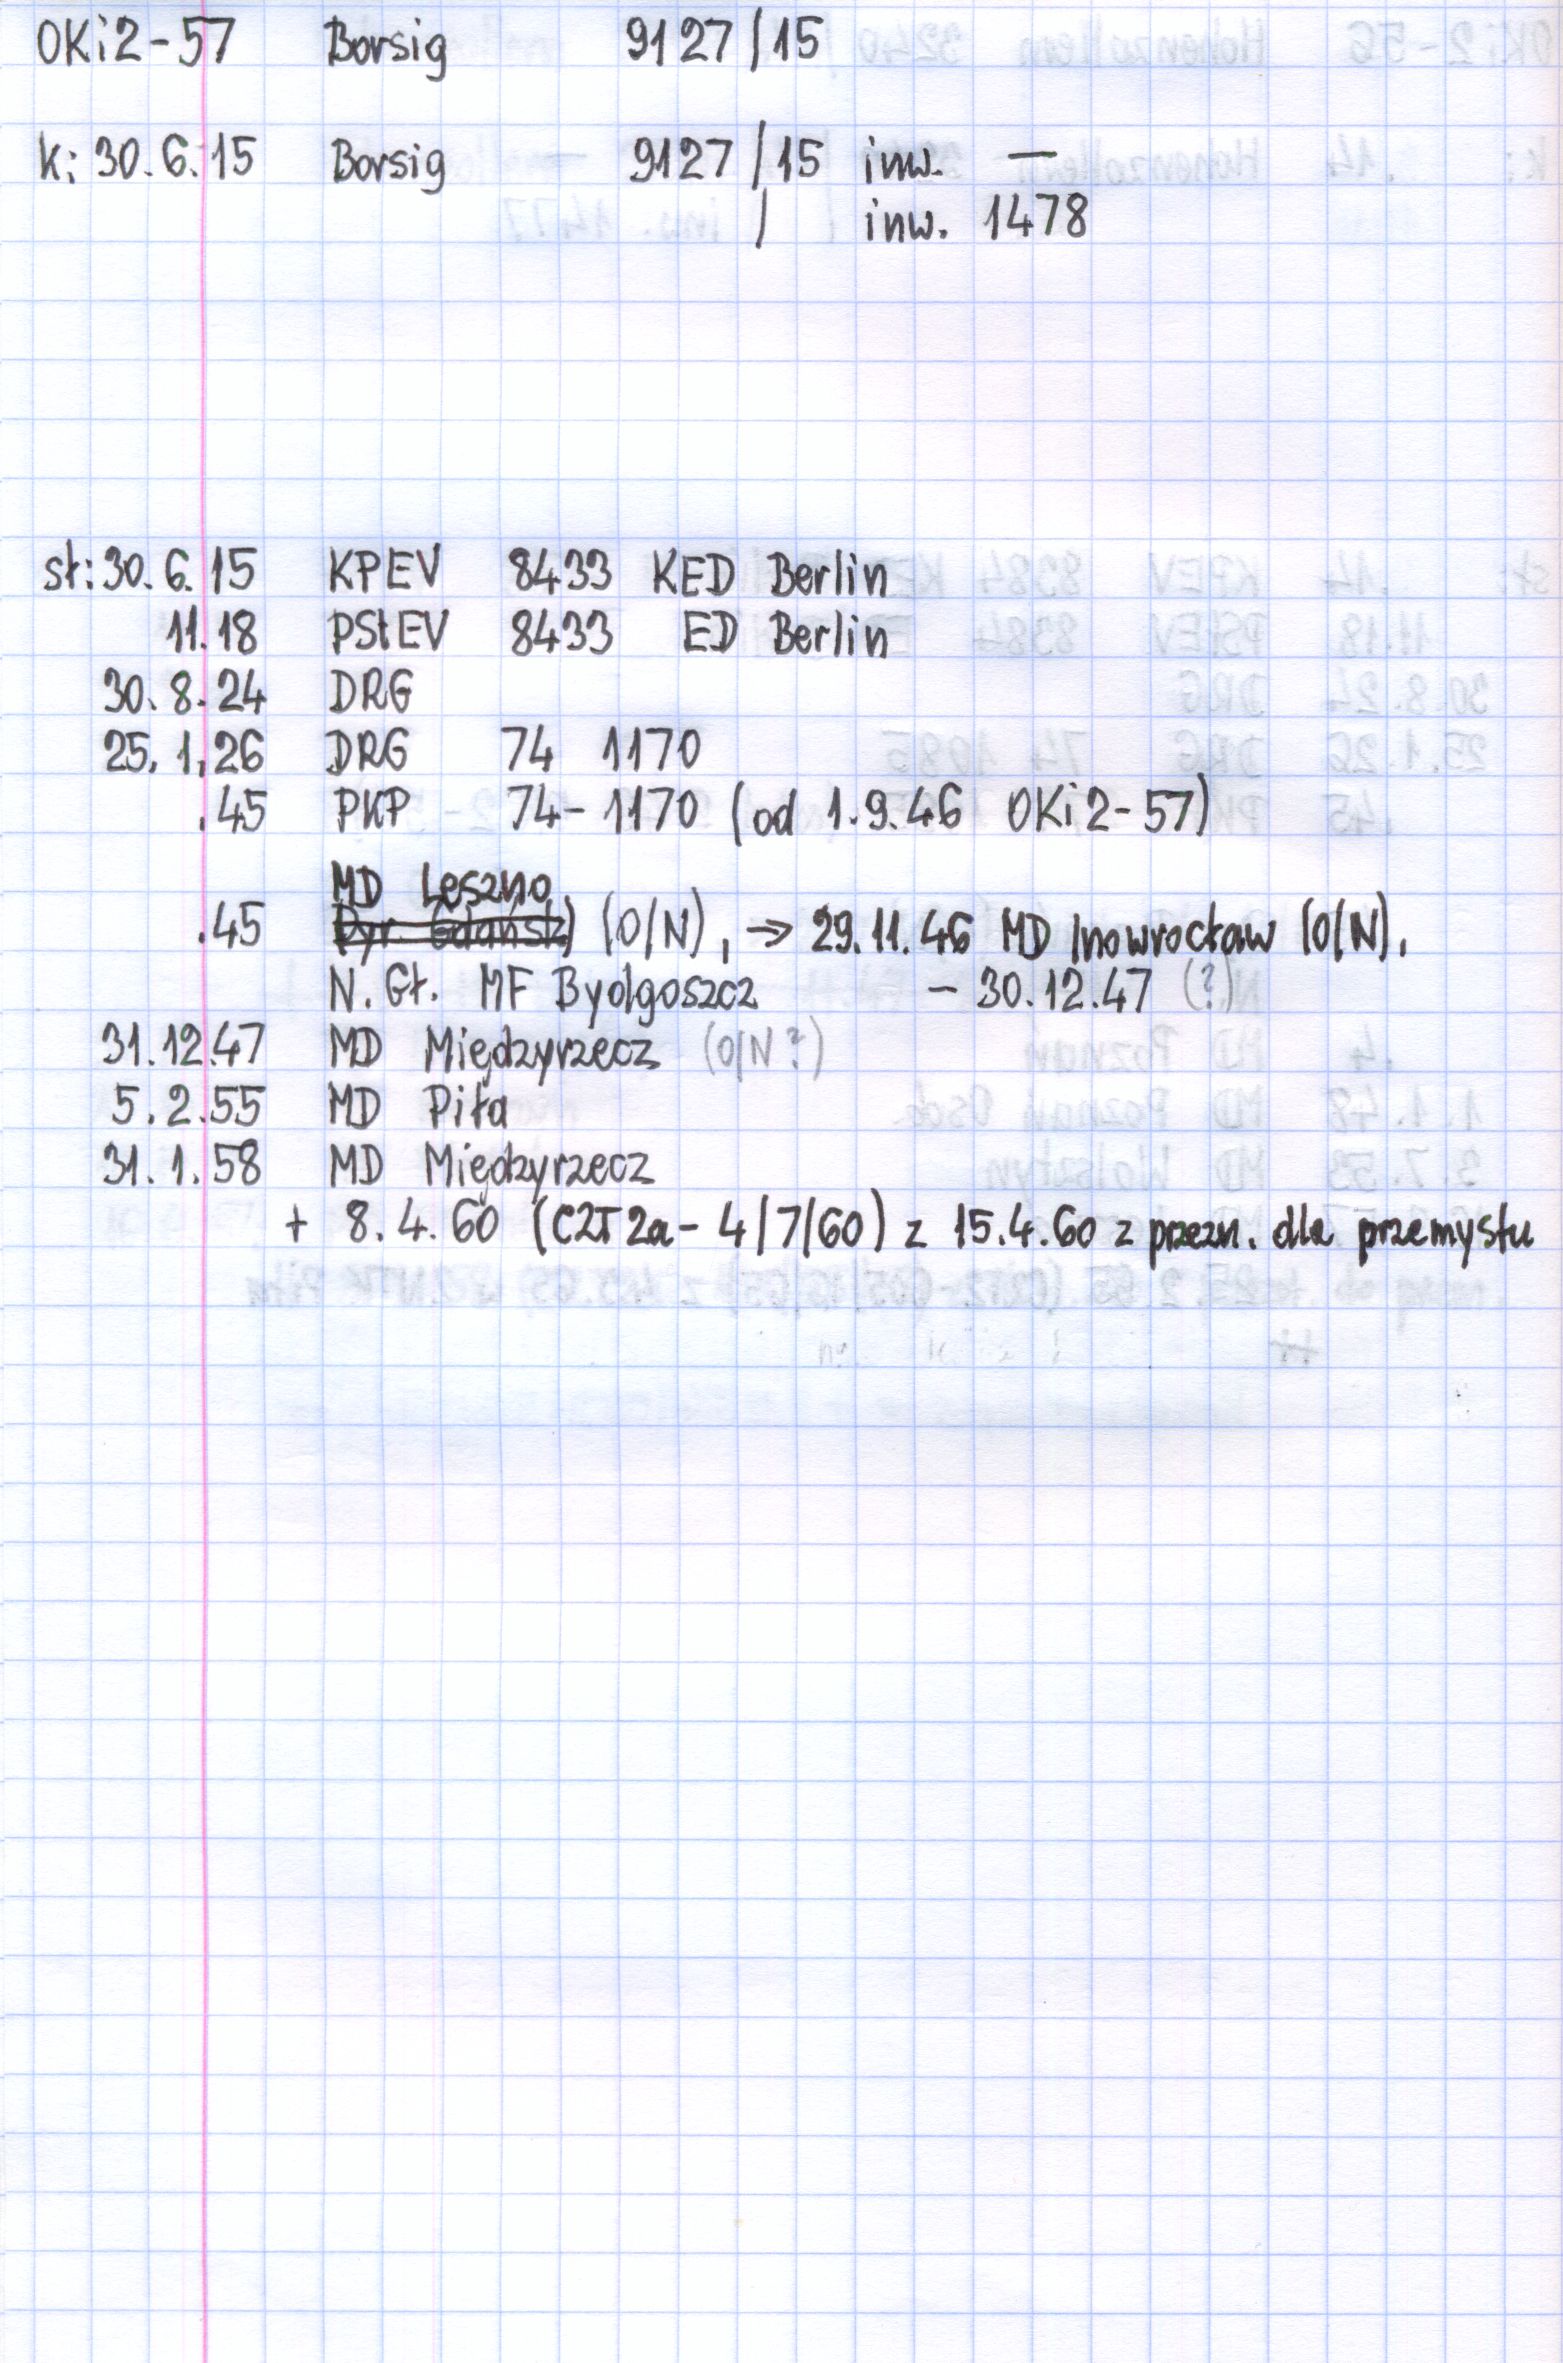 OKi2-57 Borsig 9127/15
k: 30.6.15 Borsig 9127/15 inw. —
/ inw. 1478
st: 30.6.15 KPEV 8433 KED Berlin
11.18 PStEV 8433 ED Berlin
30.8.24 DRG
25.1.26 DRG 74 1170
.45 PKP 74-1170 (od 1.9.46 OKi2-57)
MD Leszno
.45 Dyr. Gdańsk) (O/N), → 29.11.46 MD Inowrocław (O/N),
N. Gł. MF Bydgoszcz - 30.12.47 (?)
31.12.47 MD Międzyrzecz (O/N?)
5.2.55 MD Piła
31.1.58 MD Międzyrzecz
+ 8.4.60 (C2T2a-4/7/60) z 15.4.60 z przezn. dla przemysłu